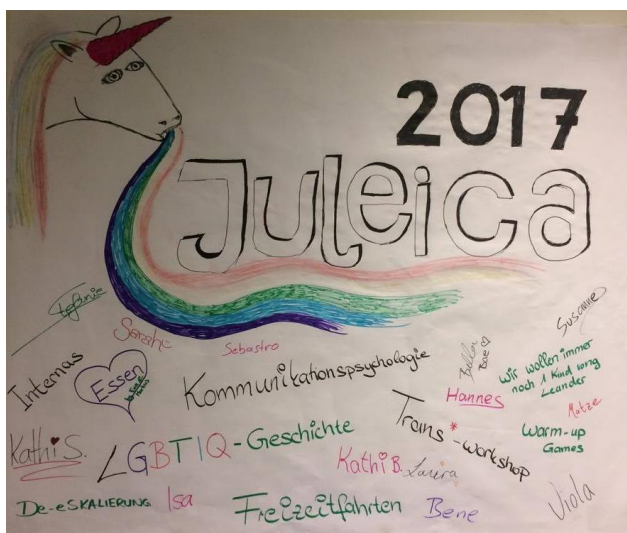 2017
Juleica
Stefanie
Sarah
Sebastro
Susanne
Internas
Essen
Kommunikationspsychologie
Wir wollen immer
noch 1 Kind wong
Leander
Hannes
Matze
Kathi S.
LGBTIQ-Geschichte
Trans*-workshop
Warm-up
Games
Kathi B.
Laura
De-eSKALIERUNG
Isa
Freizeitfahrten
Bene
Viola